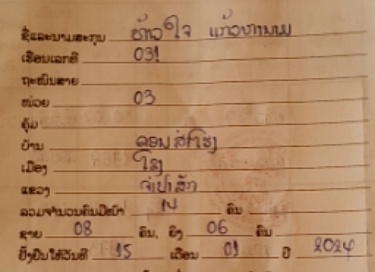 ຊື່ແລະນາມສະກຸນ ທ້າວ ໃຈ ແກ້ວ
ເຮືອນເລກທີ 031
ຖະໜົນສາຍ
ໜ່ວຍ 03
ຄຸ້ມ
ບ້ານ ດອນ
ເມືອງ ໂຂງ
ແຂວງ ຈໍາປາສັກ
ລວມຈຳນວນຄົນມີໜ້າ 14 ຄົນ
ຊາຍ 08 ຄົນ, ຍິງ 06 ຄົນ
ຢັ້ງຢືນໃຫ້ວັນທີ 15 ເດືອນ 01 ປີ 2024